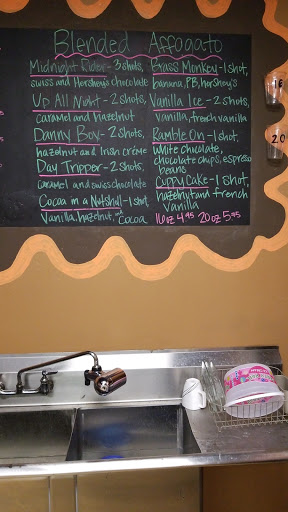 Blended Affogato
Midnight Rider - 3 shots,
swiss and Hershey's chocolate
Up All Night - 2 shots,
caramel and hazelnut
Danny Boy - 2 shots,
hazelnut and Irish créme
Day Tripper - 2 shots,
caramel and swiss chocolate
Cocoa in a Nutshell - 1 shot
Vanilla, hazelnut, and cocoa
Brass Monkey - 1 shot,
banana, PB, hershey's
Vanilla Ice - 2 shots,
vanilla, french vanilla
Ramble On - 1 shot,
white chocolate,
chocolate chips, espresso
beans
Cuppy Cake - 1 shot,
hazelnut and french
vanilla
16 oz 4.95 20 oz 5.95
16
20